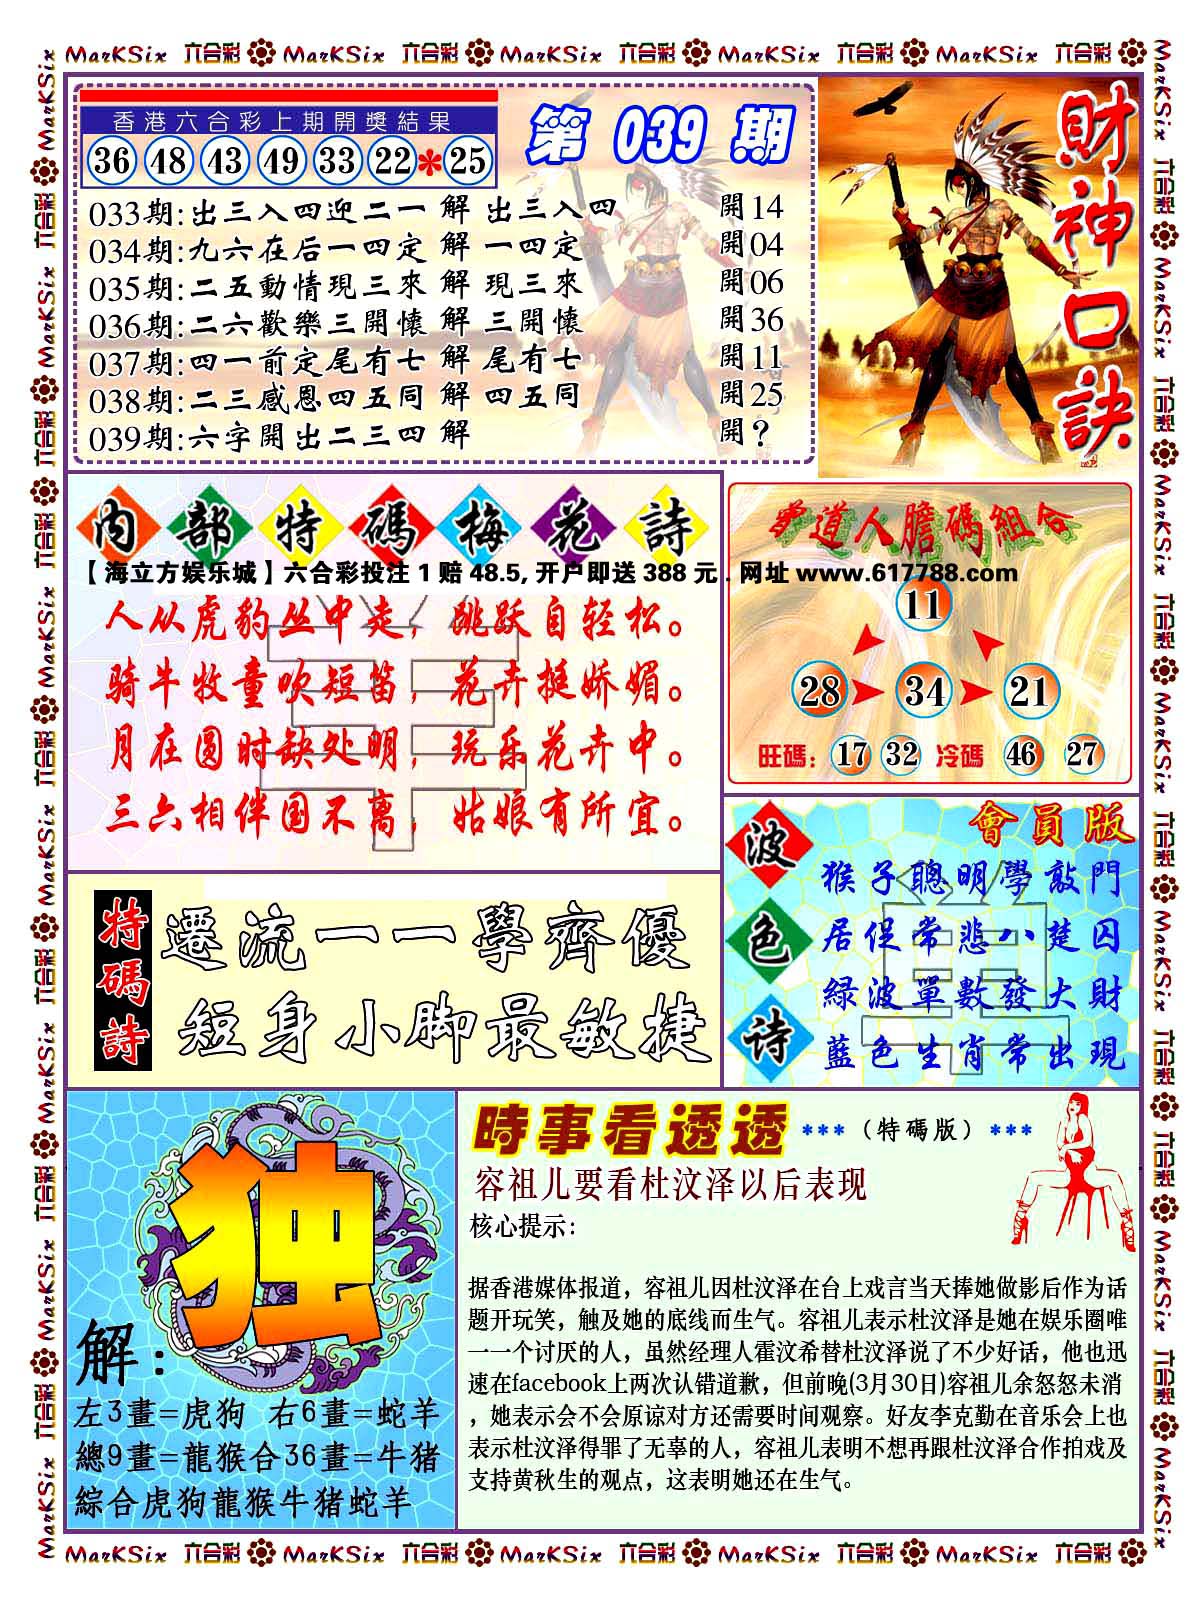 MarKSix 六合彩 MarKSix 六合彩 MarKSix 六合彩 MarKSix 六合彩 MarKSix 六合彩
香港六合彩上期開獎結果
36 48 43 49 33 22 * 25
第 039 期
033期:出三入四迎二一 解 出三入四 開14
034期:九六在后一四定 解 一四定 開04
035期:二五動情現三來 解 現三來 開06
036期:二六歡樂三開懷 解 三開懷 開36
037期:四一前定尾有七 解 尾有七 開11
038期:二三感恩四五同 解 四五同 開25
039期:六字開出二三四 解 開?
財神口訣
内部特碼梅花詩
【海立方娱乐城】六合彩投注1赔48.5,开户即送388元.网址www.617788.com
人从虎豹丛中走,跳跃自轻松。
骑牛牧童吹短笛,花卉挺娇媚。
月在圆时缺处明,玩乐花卉中。
三六相伴国不离,姑娘有所宜。
曾道人膽碼組合
11
28 34 21
旺碼: 17 32 冷碼 46 27
特碼詩
遷流一一學齊優
短身小脚最敏捷
波色诗
會員版
猴子聰明學敲門
居促常悲八楚囚
緑波單數發大財
藍色生肖常出現
独
解:
左3畫=虎狗 右6畫=蛇羊
總9畫=龍猴合36畫=牛猪
綜合虎狗龍猴牛猪蛇羊
時事看透透 ***(特碼版)***
容祖儿要看杜汶泽以后表现
核心提示:
据香港媒体报道，容祖儿因杜汶泽在台上戏言当天捧她做影后作为话
题开玩笑，触及她的底线而生气。容祖儿表示杜汶泽是她在娱乐圈唯
一一个讨厌的人，虽然经理人霍汶希替杜汶泽说了不少好话，他也迅
速在facebook上两次认错道歉，但前晚(3月30日)容祖儿余怒怒未消
，她表示会不会原谅对方还需要时间观察。好友李克勤在音乐会上也
表示杜汶泽得罪了无辜的人，容祖儿表明不想再跟杜汶泽合作拍戏及
支持黄秋生的观点，这表明她还在生气。
MarKSix 六合彩 MarKSix 六合彩 MarKSix 六合彩 MarKSix 六合彩 MarKSix 六合彩